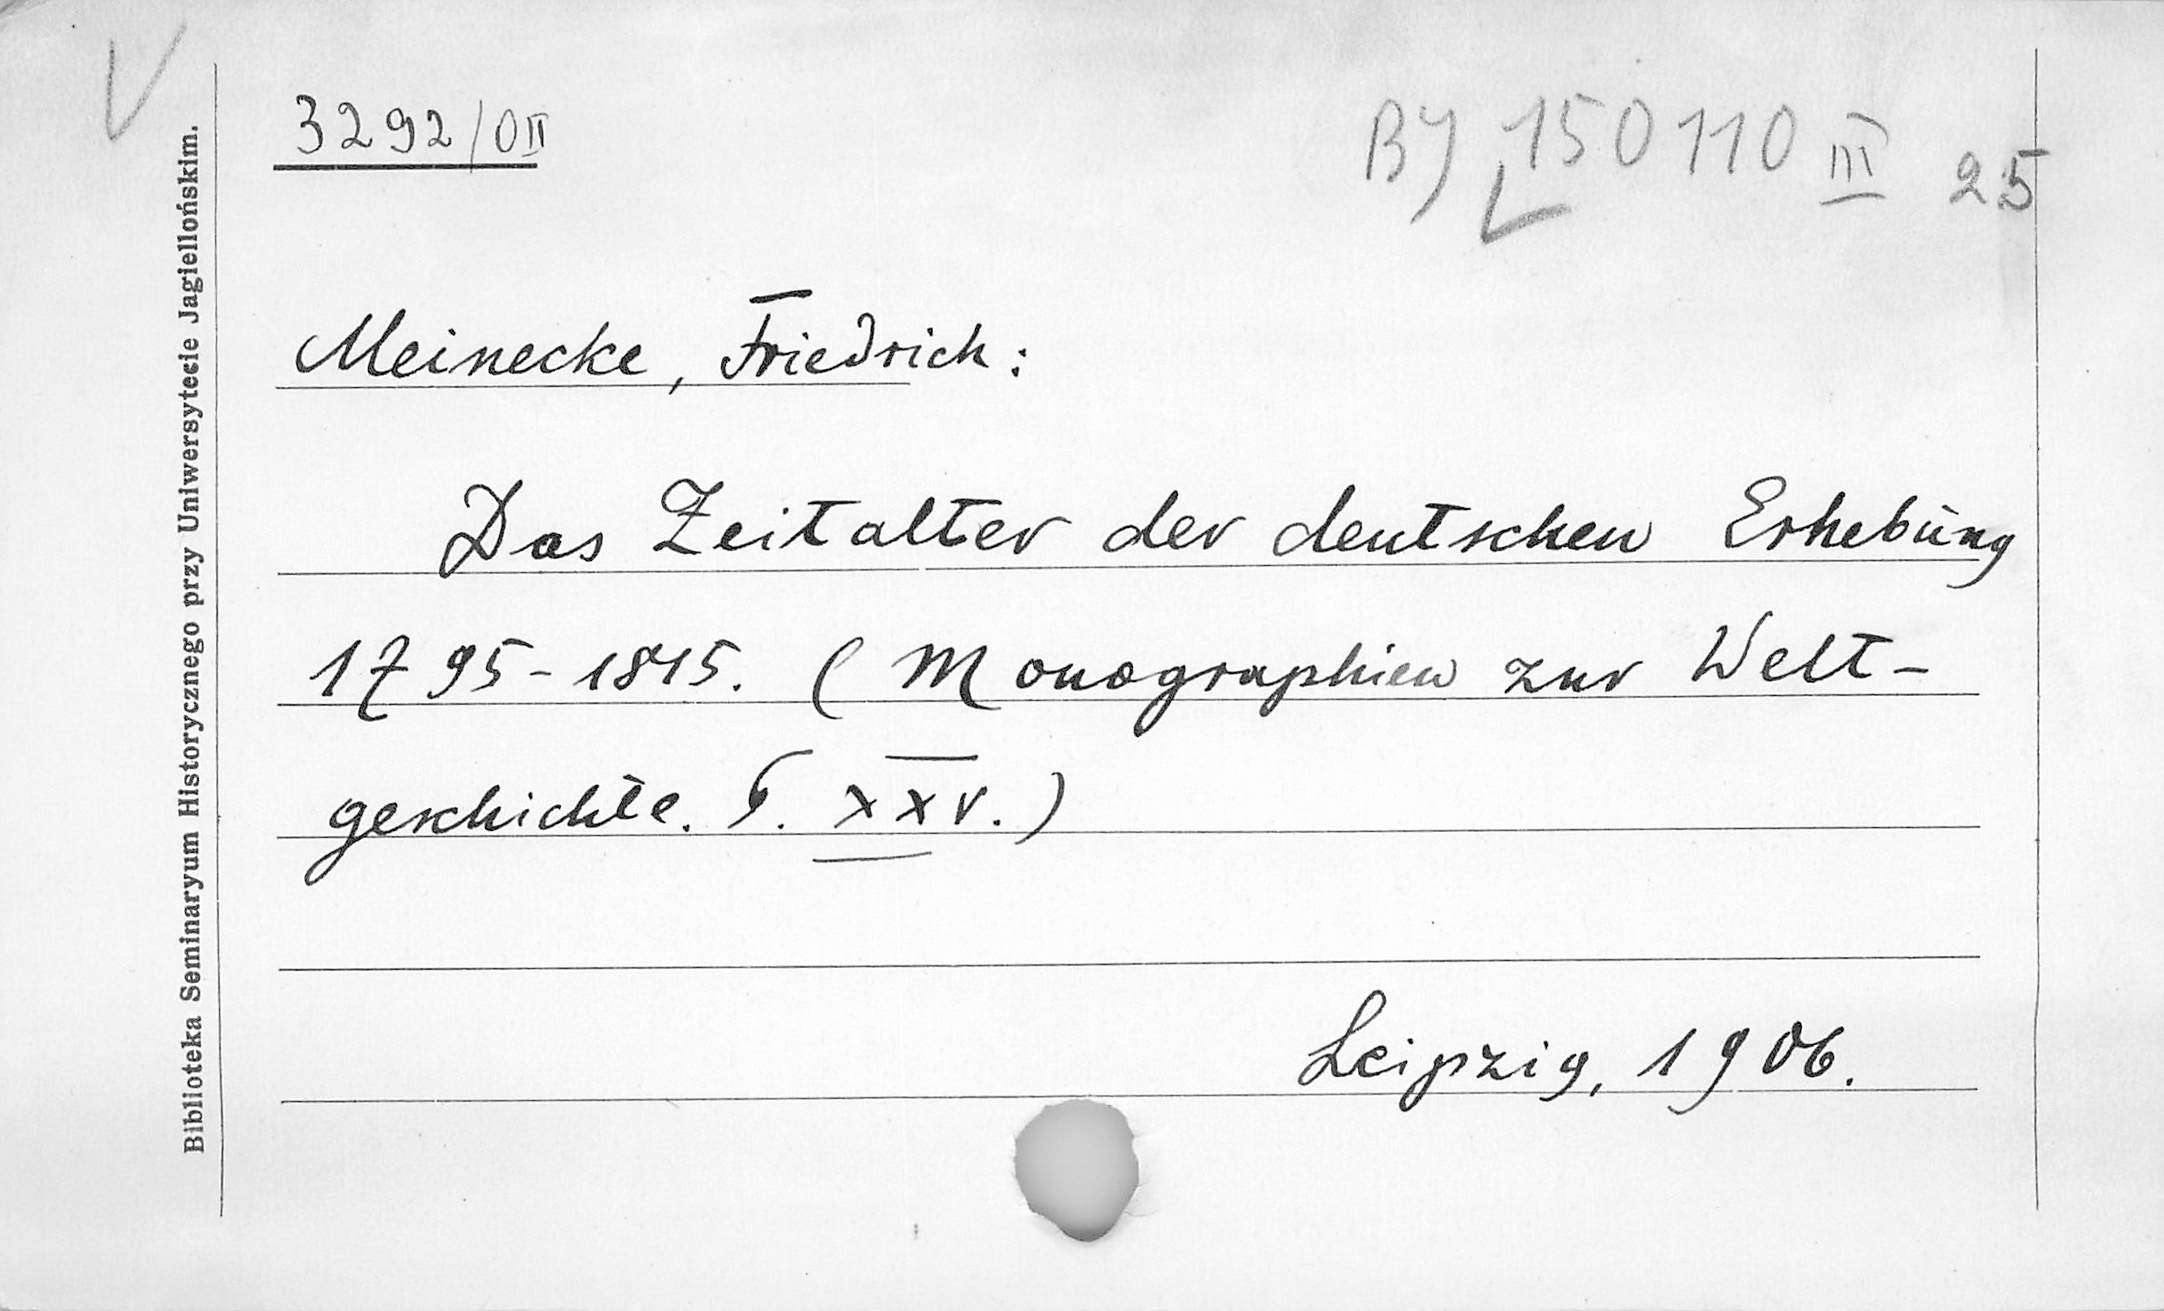 3292/OII
BJ 150110 III 25
Meinecke, Friedrich:
Das Zeitalter der deutschen Erhebung
1795-1815. (Monographien zur Welt-
geschichte. T. XXV.)
Leipzig, 1906.
Biblioteka Seminaryum Historycznego przy Uniwersytecie Jagiellońskim.